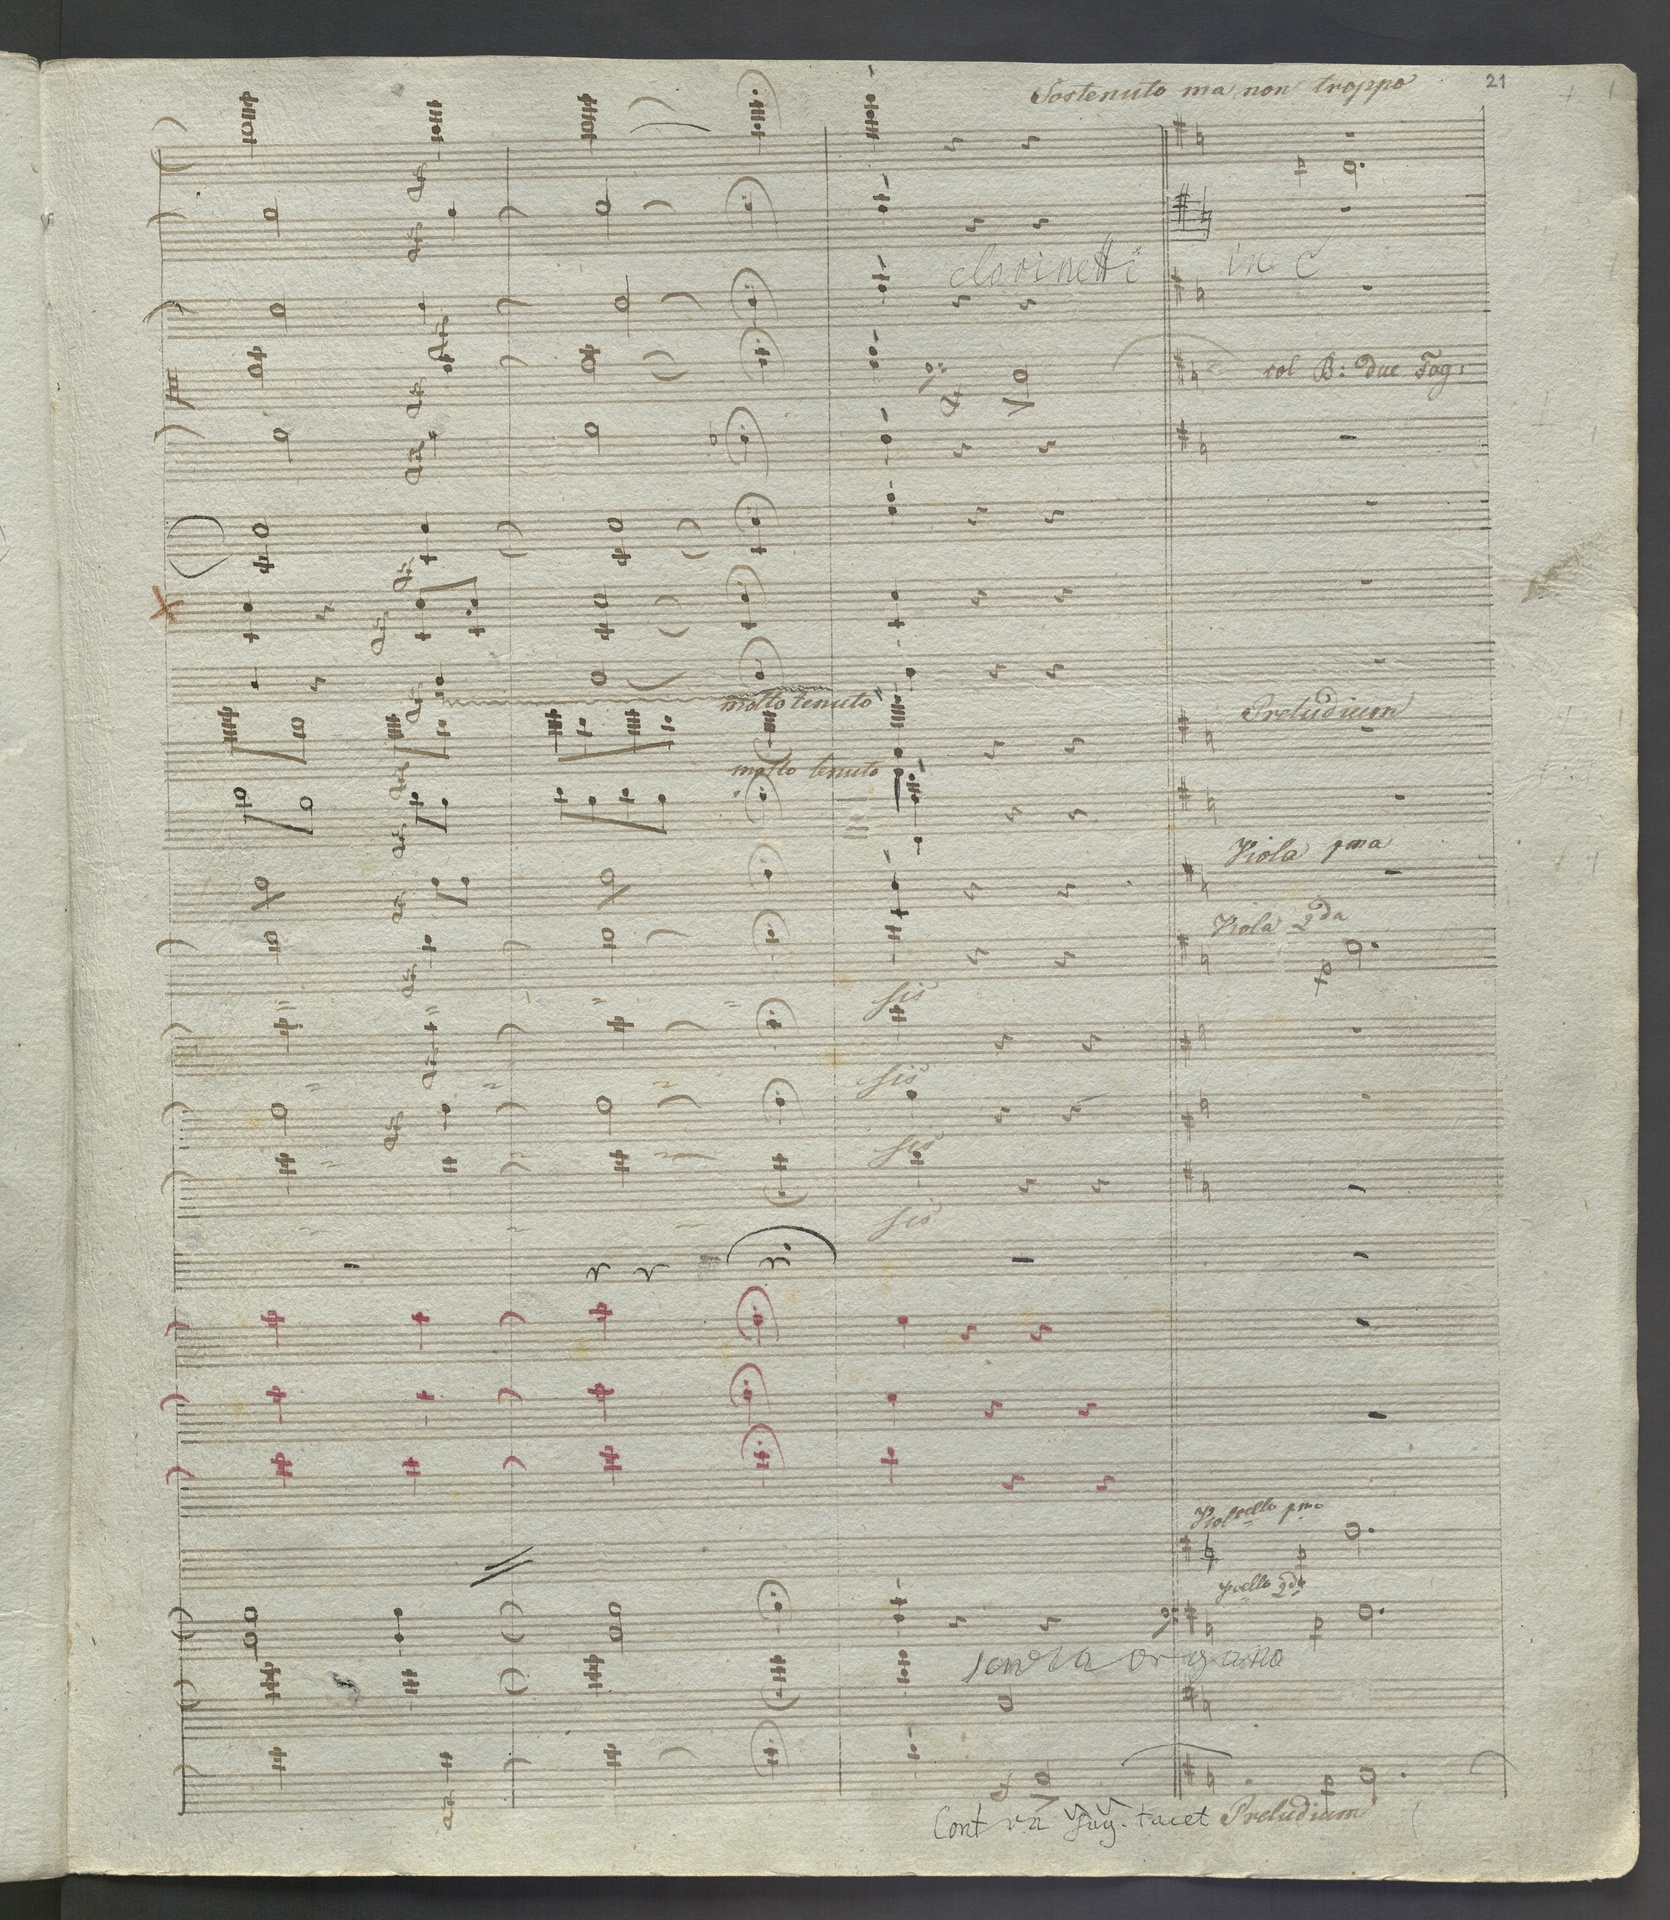 Sostenuto ma non troppo 21
clarinetti in C
col B: due Fag:
molto tenuto
Preludium
molto tenuto
Viola pma
Viola 2da
fis
fis
fis
fis
Violoncello pmo
Vcello 2do
senza organo
Contra Fag. tacet Preludium